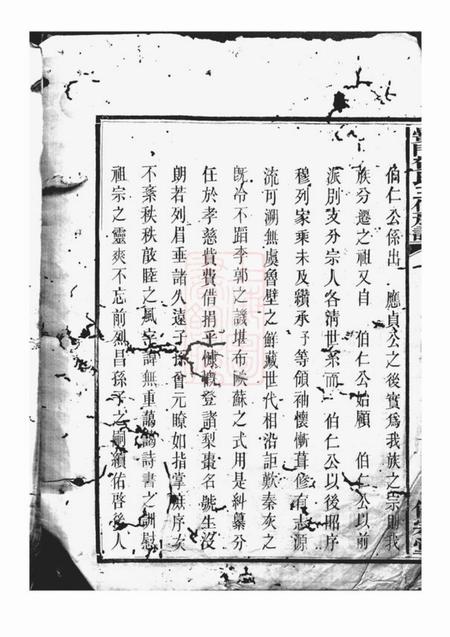 伯仁公係出　應貞公之後實爲我族之宗則我
族分遷之祖又自　伯仁公始顧　伯仁公以前
派別支分宗人各清世系而　伯仁公以後昭序
穆列家乘未及續承予等領袖懷慚葺修有志源
流可溯無虞魯壁之鮮藏世代相沿詎歎秦灰之
旣冷不蹈李郭之譏堪布歐蘇之式用是糾纂分
任於孝慈貲費借捐乎慷慨登諸梨棗名號生沒
朗若列眉垂諸久遠子孫曾元瞭如指掌庶序次
不紊秩秩敦睦之風字諱無重藹藹詩書之訓慰
祖宗之靈爽不忘前烈昌孫子之嗣續佑啓後人
氏三修族譜